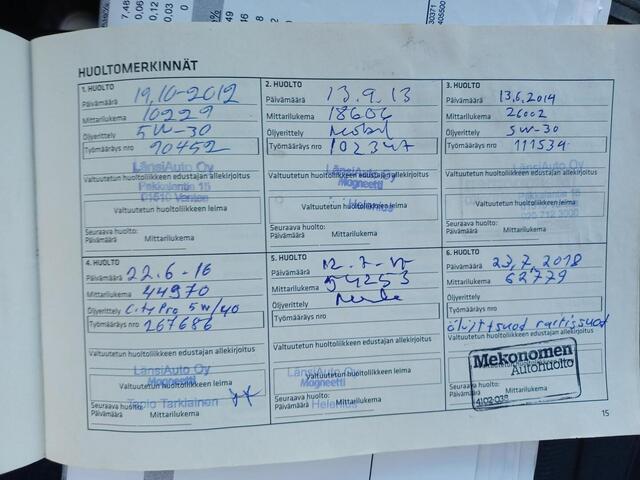 HUOLTOMERKINNÄT
1. HUOLTO
Päivämäärä 19.10-2012
Mittarilukema 10229
Öljyerittely 5W-30
Työmääräys nro 90452
LänsiAuto Oy
Valtuutetun huoltoliikkeen edustajan allekirjoitus
Pakkalantie 15
01510 Vantaa
Valtuutetun huoltoliikkeen leima
Seuraava huolto:
Päivämäärä Mittarilukema
2. HUOLTO
Päivämäärä 13.9.13
Mittarilukema 18606
Öljyerittely Mobil
Työmääräys nro 102347
LänsiAuto Oy
Magneetti
Valtuutetun huoltoliikkeen edustajan allekirjoitus
Valtuutetun huoltoliikkeen leima
Helenius
Seuraava huolto:
Päivämäärä Mittarilukema
3. HUOLTO
Päivämäärä 13.6.2014
Mittarilukema 26002
Öljyerittely 5W-30
Työmääräys nro 111534
Valtuutetun huoltoliikkeen edustajan allekirjoitus
Pakkalantie 15
Valtuutetun huoltoliikkeen leima
020 712 3000
Seuraava huolto:
Päivämäärä Mittarilukema
4. HUOLTO
Päivämäärä 22.6-16
Mittarilukema 44970
Öljyerittely City Pro 5w/40
Työmääräys nro 267686
Valtuutetun huoltoliikkeen edustajan allekirjoitus
LänsiAuto Oy
Magneetti
Valtuutetun huoltoliikkeen leima
Seuraava huolto:
Tapio Tarkiainen
Päivämäärä Mittarilukema
5. HUOLTO
Päivämäärä 12.7-17
Mittarilukema 54253
Öljyerittely
Työmääräys nro
Valtuutetun huoltoliikkeen edustajan allekirjoitus
LänsiAuto Oy
Valtuutetun huoltoliikkeen leima
Magneetti
Seuraava huolto:
Päivämäärä Mittarilukema
Helenius
6. HUOLTO
Päivämäärä 23.7.2018
Mittarilukema 62779
Öljyerittely
Työmääräys nro
öljyt+suod raitis.suod
Valtuutetun huoltoliikkeen edustajan allekirjoitus
Mekonomen
Autohuolto
Valtuutetun huoltoliikkeen leima
Seuraava huolto:
Päivämäärä Mittarilukema
4102-038
15